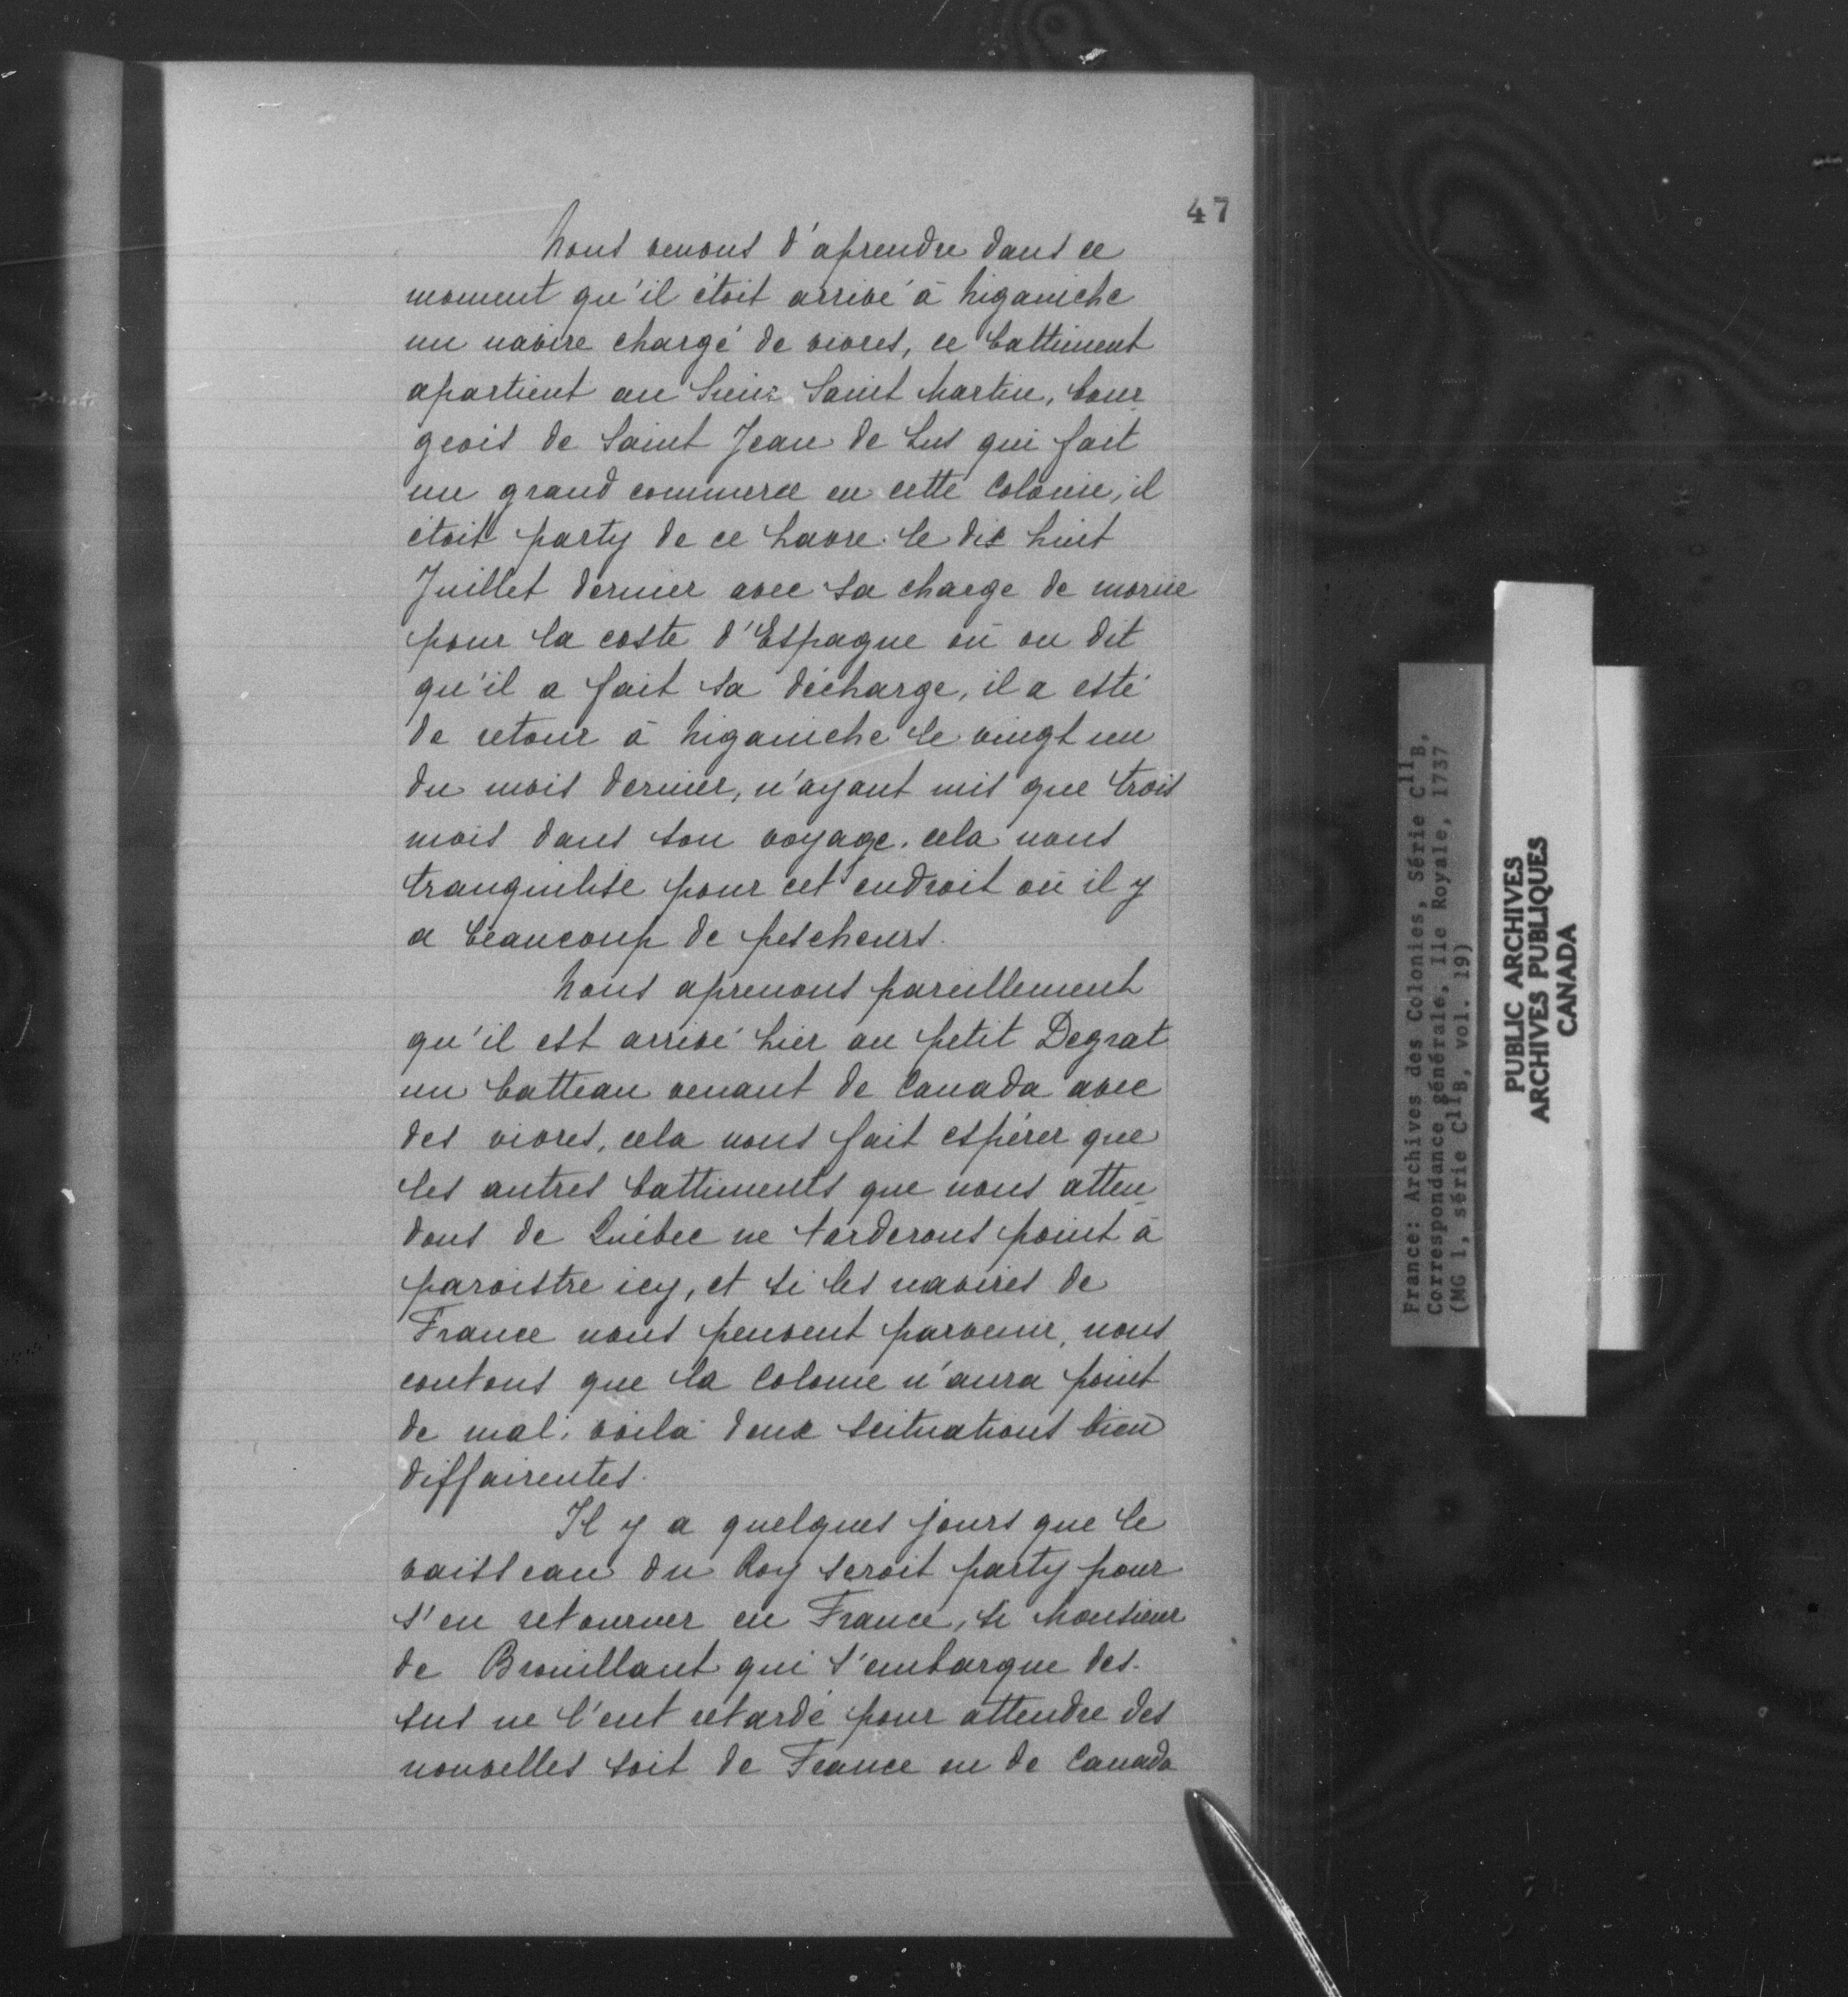 47
Nous venons d'aprendre dans ce
moment qu'il étoit arrivé à Niganiche
un navire chargé de vivres, ce battiment
apartient au Sieur Saint Martin, bour
geois de Saint Jean de Lus qui fait
un grand commerce en cette Colonie, il
étoit party de ce havre le dix huit
Juillet dernier avec sa charge de morüe
pour la coste d'Espagne où on dit
qu'il a fait sa décharge, il a esté
de retour à Niganiche le vingt un
du mois dernier, n'ayant mis que trois
mois dans son voyage. cela nous
tranquilise pour cet endroit où il y
a beaucoup de pescheurs.
Nous aprenons pareillement
qu'il est arrivé hier au petit Degrat
un batteau venant de Canada avec
des vivres, cela nous fait espérer que
les autres battiments que nous atten
dons de Québec ne tarderons point à
paroistre icy, et si les navires de
France nous peuvent parvenir, nous
contons que la Colonie n'aura point
de mal. voila deux scituations bien
diffairentes.
Il y a quelques jours que le
vaisseau du Roy seroit party pour
s'en retourner en France, si Monsieur
de Brouillant qui s'embarque des-
sus ne l'eut retardé pour attendre des
nouvelles soit de France ou de Canada
France: Archives des Colonies, Série C11B,
Correspondance générale, Ile Royale, 1737
(MG 1, série C11B, vol. 19)
PUBLIC ARCHIVES
ARCHIVES PUBLIQUES
CANADA